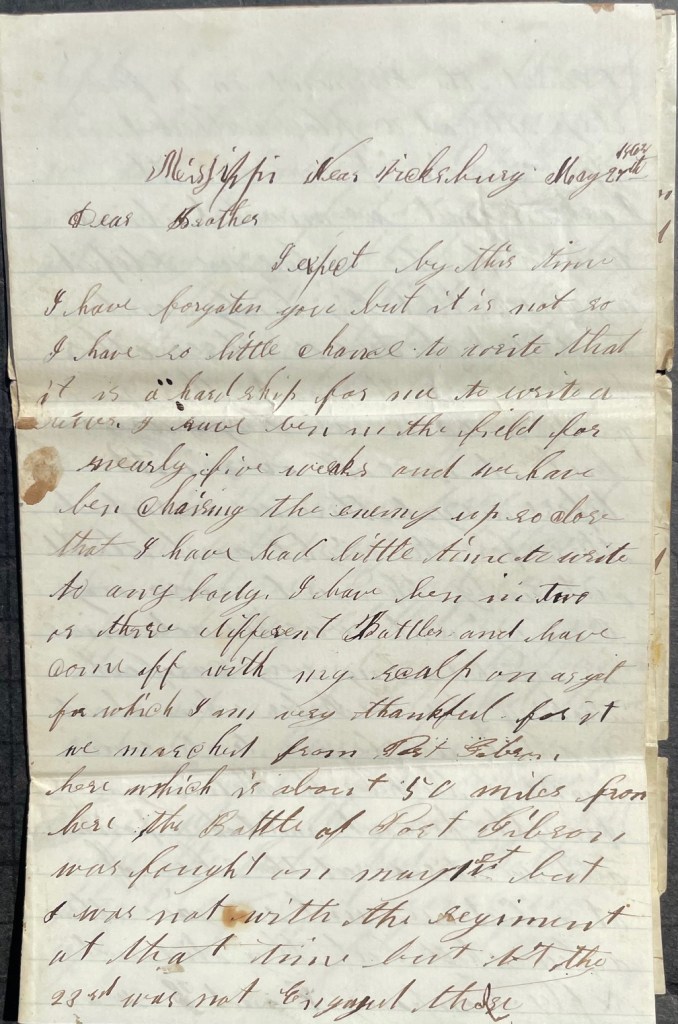 Mississippi Near Vicksburg May 24th 1863
Dear Brother
I expect by this time
I have forgoten you but it is not so
I have so little chance to write that
it is a hard ship for me to write a
I have ben in the field for
nearly five weaks and we have
ben chaising the enemy up so close
that I have had little time to write
to any body. I have ben in two
or three different Battles and have
come off with my scalp on as yet
for which I am very thankful for it
we marched from Port Gibson,
here which is about 50 miles from
here the Battle of Port Gibson,
was fought on may 1st but
I was not with the regiment
at that time but the
23rd was not Engaged